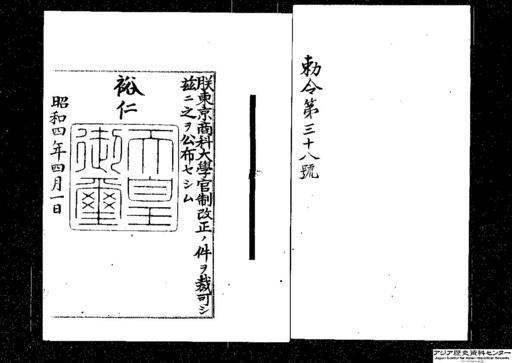 勅令第三十八號
朕東京商科大學官制改正ノ件ヲ裁可シ
玆ニ之ヲ公布セシム
裕仁
天皇
御璽
昭和四年四月一日
アジア歴史資料センター
Japan Center for Asian Historical Records